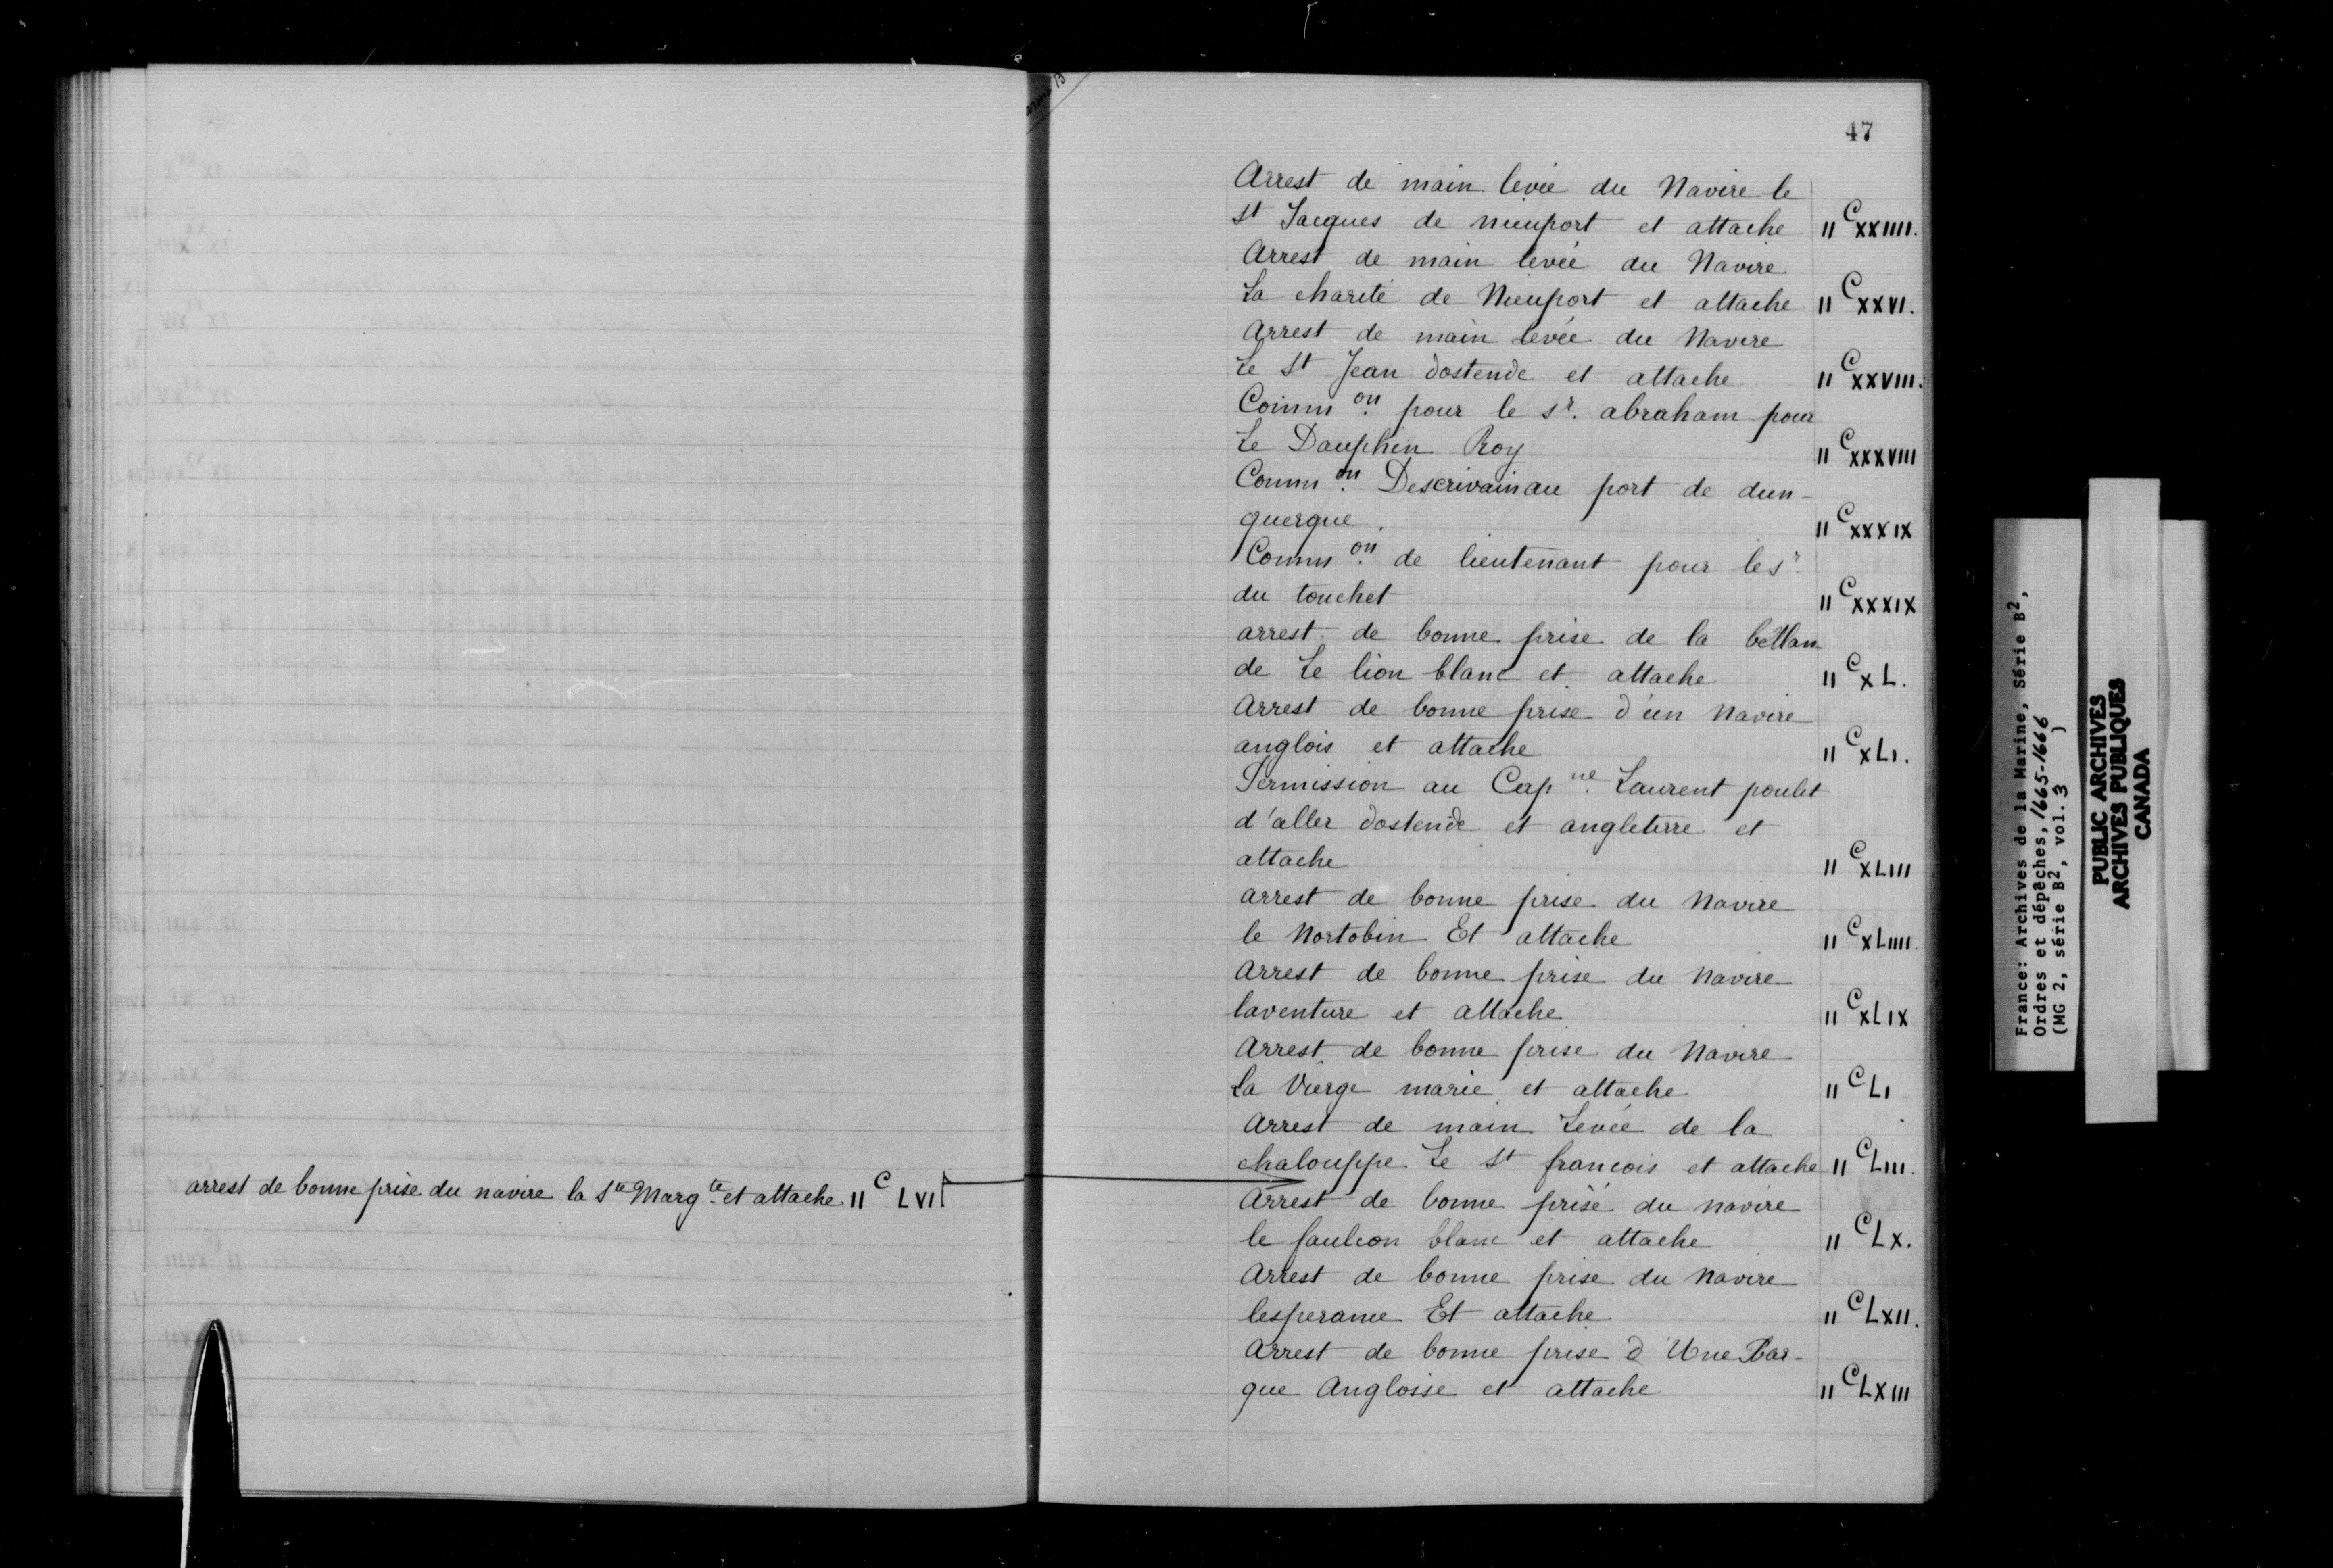 47
Arrest de main levée du Navire le
St Jacques de nieuport et attache II C XXIIII.
Arrest de main levée du Navire
La charité de Nieuport et attache II C XXVI.
Arrest de main levée du Navire
Le St Jean dostende et attache II C XXVIII.
Comm on. pour le sr. abraham pour
Le Dauphin Roy II C XXXVIII
Comm on. Descrivain au port de dun-
querque. II C XXXIX
Comm on. de lieutenant pour le sr.
du touchet II C XXXIX
arrest de bonne prise de la bettan
de Le lion blanc et attache II C XL.
Arrest de bonne prise d'un Navire
anglois et attache II C XLI.
Permission au Cap ne. Laurent poulet
d'aller dostende et angleterre et
attache II C XLIII
arrest de bonne prise du Navire
le Nortobin Et attache II C XLIIII.
Arrest de bonne prise du Navire
laventure et attache II C XLIX
Arrest de bonne prise du Navire
La Vierge marie et attache II C LI
Arrest de main Levée de la
chalouppe Le St francois et attache II C LIII.
arrest de bonne prise du navire la Ste Marg te. et attache II C LVI
Arrest de bonne prise du navire
le faulcon blanc et attache II C LX.
Arrest de bonne prise du Navire
lesperance Et attache II C LXII.
Arrest de bonne prise d'Une Bar-
que Angloise et attache II C LXIII
France: Archives de la Marine, Série B2,
Ordres et dépêches, 1665-1666
(MG 2, série B2, vol. 3 )
PUBLIC ARCHIVES
ARCHIVES PUBLIQUES
CANADA